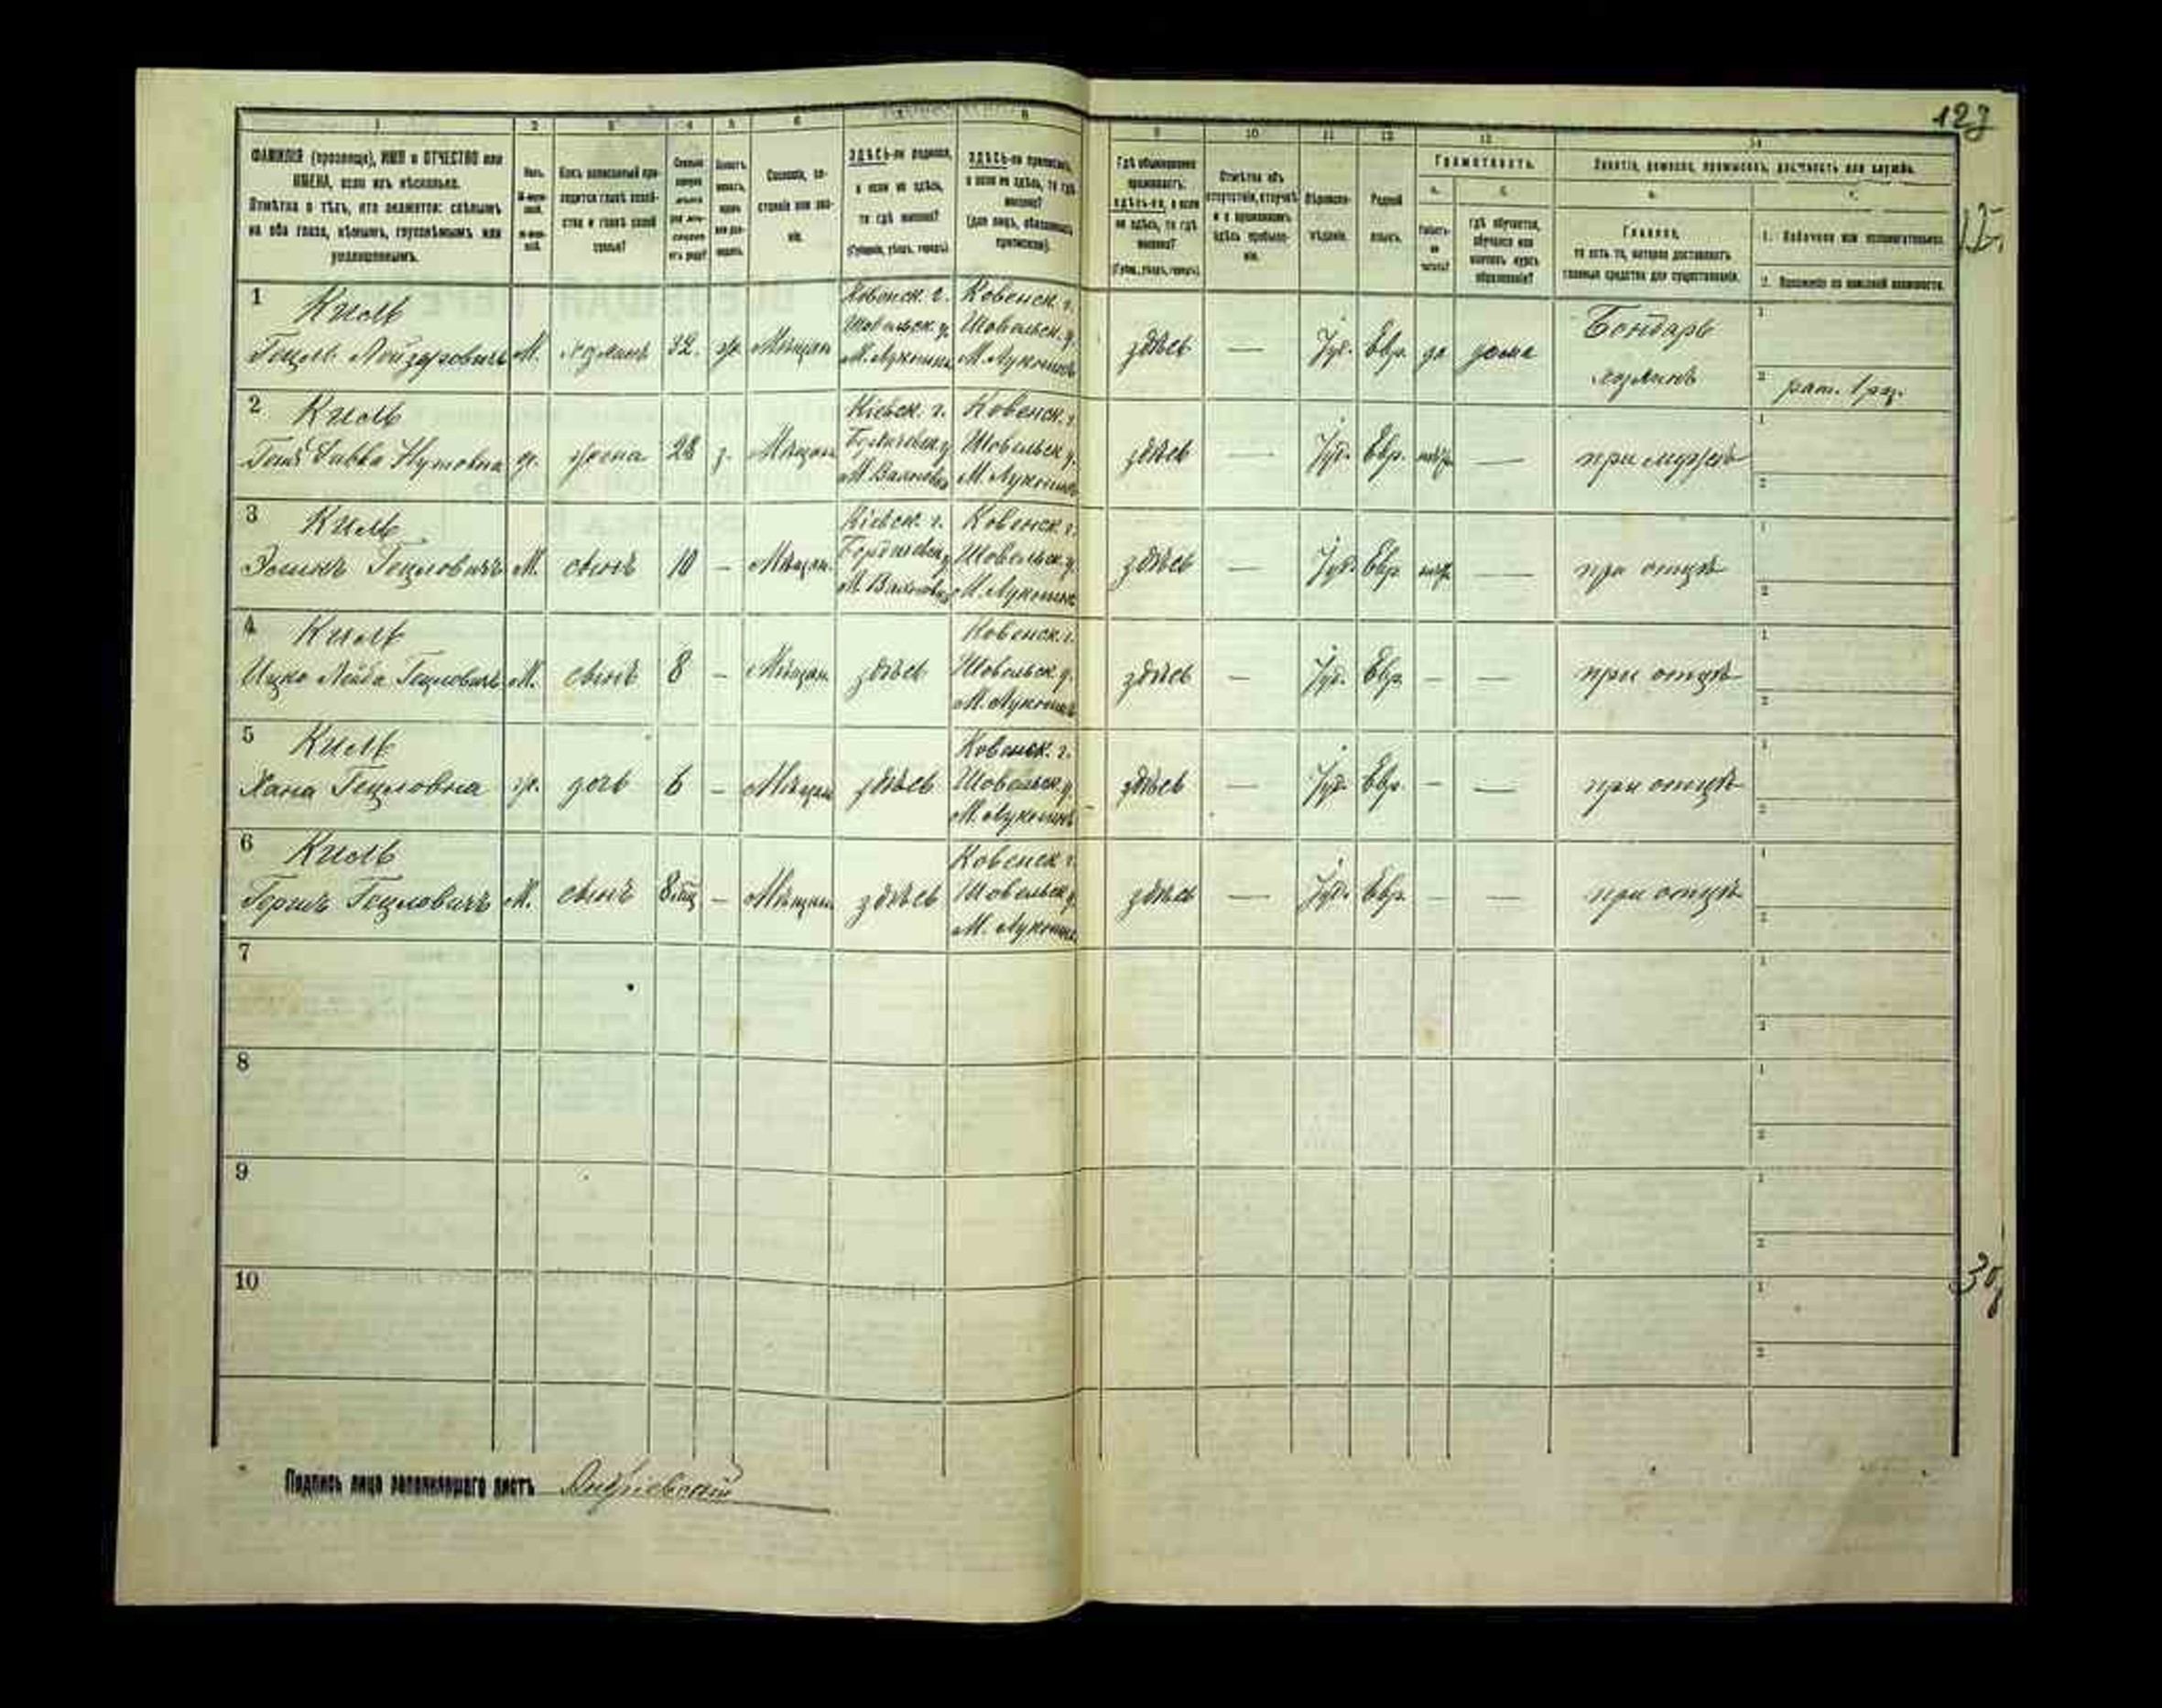 123
1 2 3 4 5 6 7 8 9 10 11 12 13 14
ФАМИЛІЯ (прозвище), ИМЯ и ОТЧЕСТВО или
ИМЕНА, если ихъ нѣсколько.
Отмѣтка о тѣхъ, кто окажется: слѣпымъ
на оба глаза, нѣмымъ, глухонѣмымъ или
умалишеннымъ.
Полъ.
М-мужской.
Ж-женскій.
Какъ записанный приходится
главѣ хозяйства
и главѣ своей
семьи?
Сословіе, состояніе
или званіе.
ЗДѢСЬ-ли родился,
а если не здѣсь,
то гдѣ именно?
(Губернія, уѣздъ, городъ).
ЗДѢСЬ-ли приписанъ,
а если не здѣсь, то гдѣ
именно?
(для лицъ, обязанныхъ
припискою).
Гдѣ обыкновенно
проживаетъ:
здѣсь-ли, а если
не здѣсь, то гдѣ
именно?
(Губер., уѣздъ, городъ).
Отмѣтка объ
отсутствіи, отлучкѣ
и о временномъ
здѣсь пребываніи.
Вѣроисповѣданіе.
Родной
языкъ.
Грамотность.
а.
Умѣетъ-ли
читать?
б.
гдѣ обучается,
обучался или
кончилъ курсъ
образованія?
Занятіе, ремесло, промыселъ, должность или служба.
Главное,
то есть то, которое доставляетъ
главныя средства для существованія.
1. Побочное или вспомогательное.
2. Положеніе по воинской повинности.
1 Киль
Гецель Лейзеровичъ М. хозяинъ 32. ж. Мѣщан. Ковенск. г. Шовельск. у. М. Лукникъ Ковенск. г. Шовельск. у. М. Лукникъ здѣсь — Іуд. Евр. да дома Бондарь хозяинъ рат. 1 раз.
2 Киль
Ривка ж. жена 28 з. Мѣщан. Кіевск. г. Бердичевск. у. М. Ковенск. г. Шовельск. у. М. Лукникъ здѣсь — Іуд. Евр. — при мужѣ
3 Киль
Гецловичъ М. сынъ 10 — Мѣщан. Кіевск. г. Бердичевск. у. М. Ковенск. г. Шовельск. у. М. Лукникъ здѣсь — Іуд. Евр. — при отцѣ
4 Киль
Ицко Лейба Гецловичъ М. сынъ 8 — Мѣщан. здѣсь Ковенск. г. Шовельск. у. М. Лукникъ здѣсь — Іуд. Евр. — — при отцѣ
5 Киль
Хана Гецловна ж. дочь 6 — Мѣщан. здѣсь Ковенск. г. Шовельск. у. М. Лукникъ здѣсь — Іуд. Евр. — — при отцѣ
6 Киль
Гершъ Гецловичъ М. сынъ 8 мѣс — Мѣщан. здѣсь Ковенск. г. Шовельск. у. М. Лукникъ здѣсь — Іуд. Евр. — — при отцѣ
7
8
9
10
Подпись лица заполнявшаго листъ Андріевскій